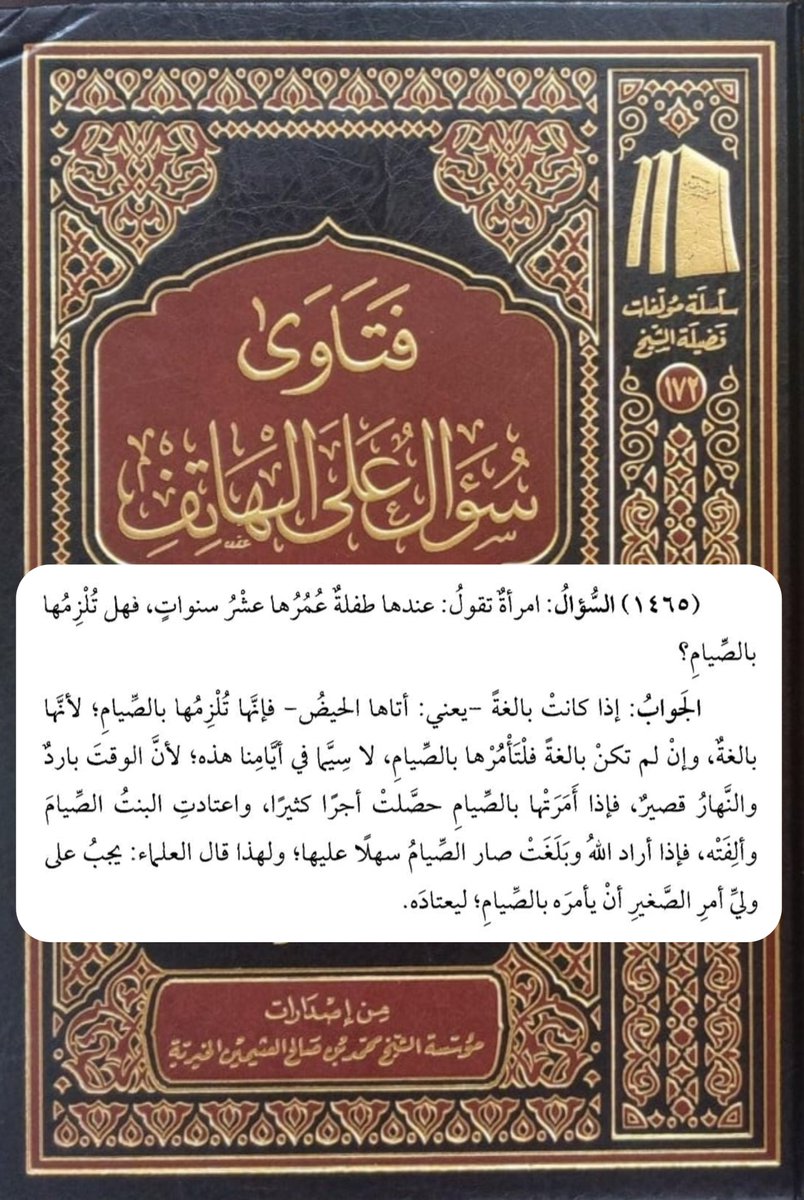 سلسلة مؤلفات
فضيلة الشيخ
١٧٢
فَتَاوَى
سُؤَال عَلَى الهَاتِفِ
(١٤٦٥) السُّؤالُ: امرأةٌ تقولُ: عندها طفلةٌ عُمُرُها عشْرُ سنواتٍ، فهل تُلْزِمُها
بالصِّيامِ؟
الجَوابُ: إذا كانتْ بالغةً -يعني: أتاها الحيضُ- فإنَّها تُلْزِمُها بالصِّيامِ؛ لأنَّها
بالغةٌ، وإنْ لم تكنْ بالغةً فلْتَأْمُرْها بالصِّيامِ، لا سِيَّما في أيَّامِنا هذه؛ لأنَّ الوقتَ باردٌ
والنَّهارُ قصيرٌ، فإذا أَمَرَتْها بالصِّيامِ حصَّلتْ أجرًا كثيرًا، واعتادتِ البنتُ الصِّيامَ
وألِفَتْه، فإذا أراد اللهُ وبَلَغَتْ صار الصِّيامُ سهلًا عليها؛ ولهذا قال العلماء: يجبُ على
وليِّ أمرِ الصَّغيرِ أنْ يأمرَه بالصِّيامِ؛ ليعتادَه.
مِن إصدَارات
مؤسسة الشيخ محمد بن صالح العثيمين الخيرية